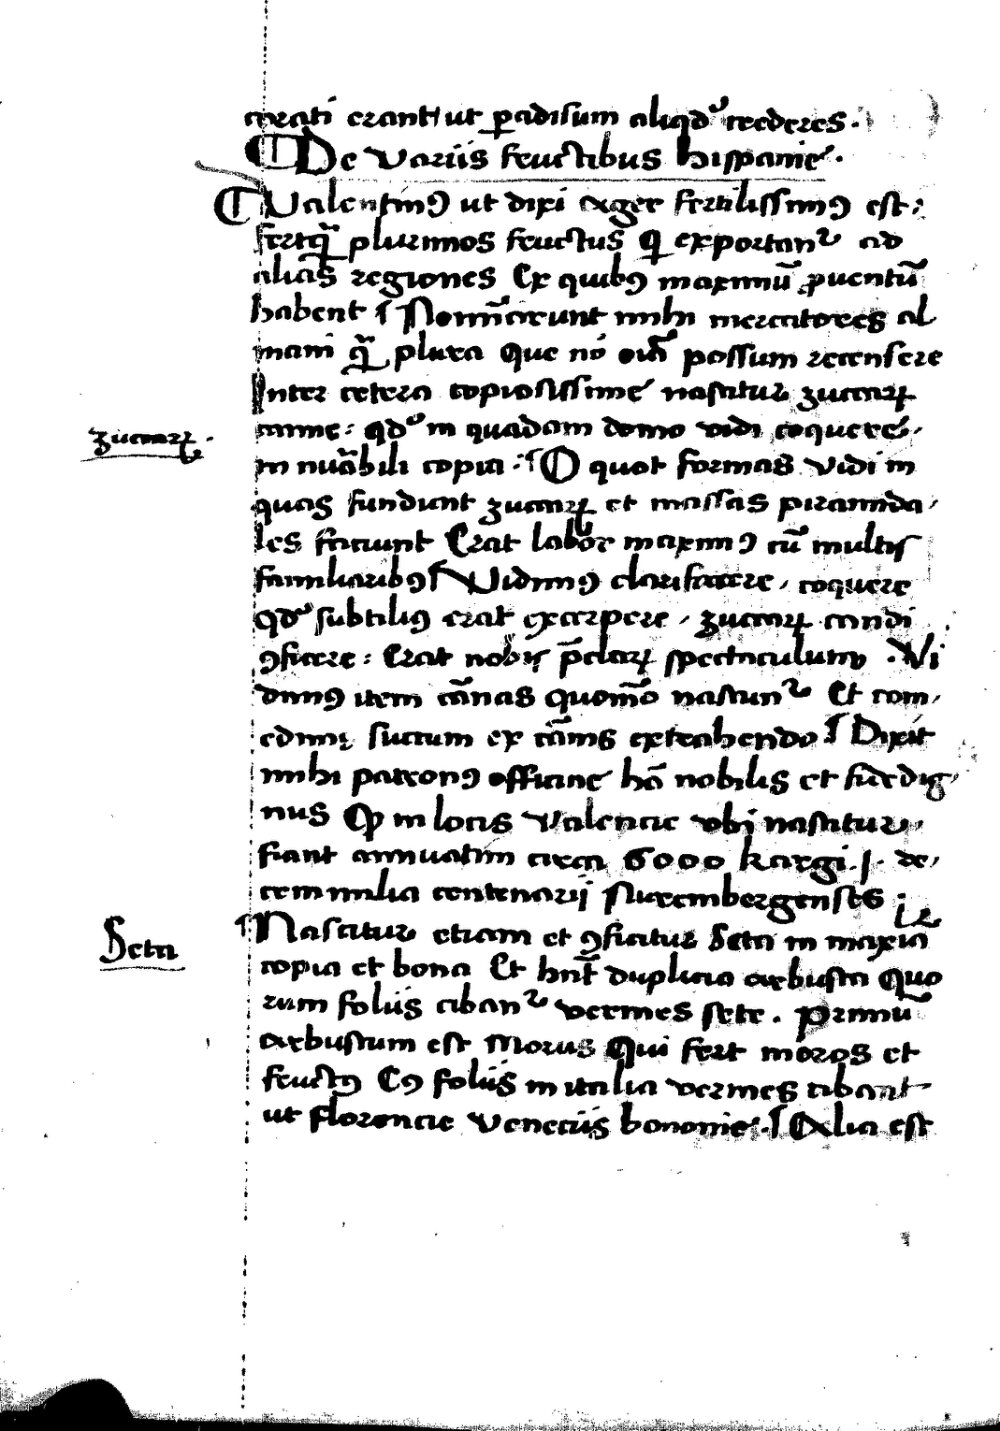 curati erant ut ꝑadisum aliqd' crederes.
De variis fructibus hispanie.
Valentinꝰ ut dixi ager fertilissimꝰ est:
fertq̄ plurimos fructus q̄ exportant᷑ ad
alias regiones Ex quibꝰ maximū ꝓuentū
habent Noīarunt mihi mercatores al
mani q̄ plura Que nō oīa possum recensere
Inter cetera copiosissime nascitur zuccarꝝ
zuccarꝝ.
canne: qd' in quadam domo vidi coquere.
in nūabili copia: O quot formas vidi in
quas fundunt zuccarꝝ et massas piramida,
les faciunt Erat labor maximꝰ cū multis
familiaribꝰ Vidimꝰ clarificare, coquere
qd' subtiliꝰ erat excerpere, zuccarꝝ candi
ꝯficere: Erat nobis p̄clarꝝ spectaculum. Vi
dimꝰ item cānas quomō nascunt᷑ Et com,
edimꝰ succum ex cānis extrahendo Dixit
mihi patronꝰ officine hō nobilis et fidedig,
nus Qp in locis Valencie vbi nascitur,
fiant annuatim circa 6000 kargi. j. de,
cem milia centenarii Nurembergenses
Seta
Nascitur etiam et ꝯficitur Seta in maxīa
copia et bona Et hn̄t duplicia arbusta Quo
rum foliis cibant᷑ vermes sete. Primū
arbustum est Morus Qui fert moros et
fructꝰ Cꝰ foliis in italia vermes cibant
ut florencie Veneciis bononie. Alia est